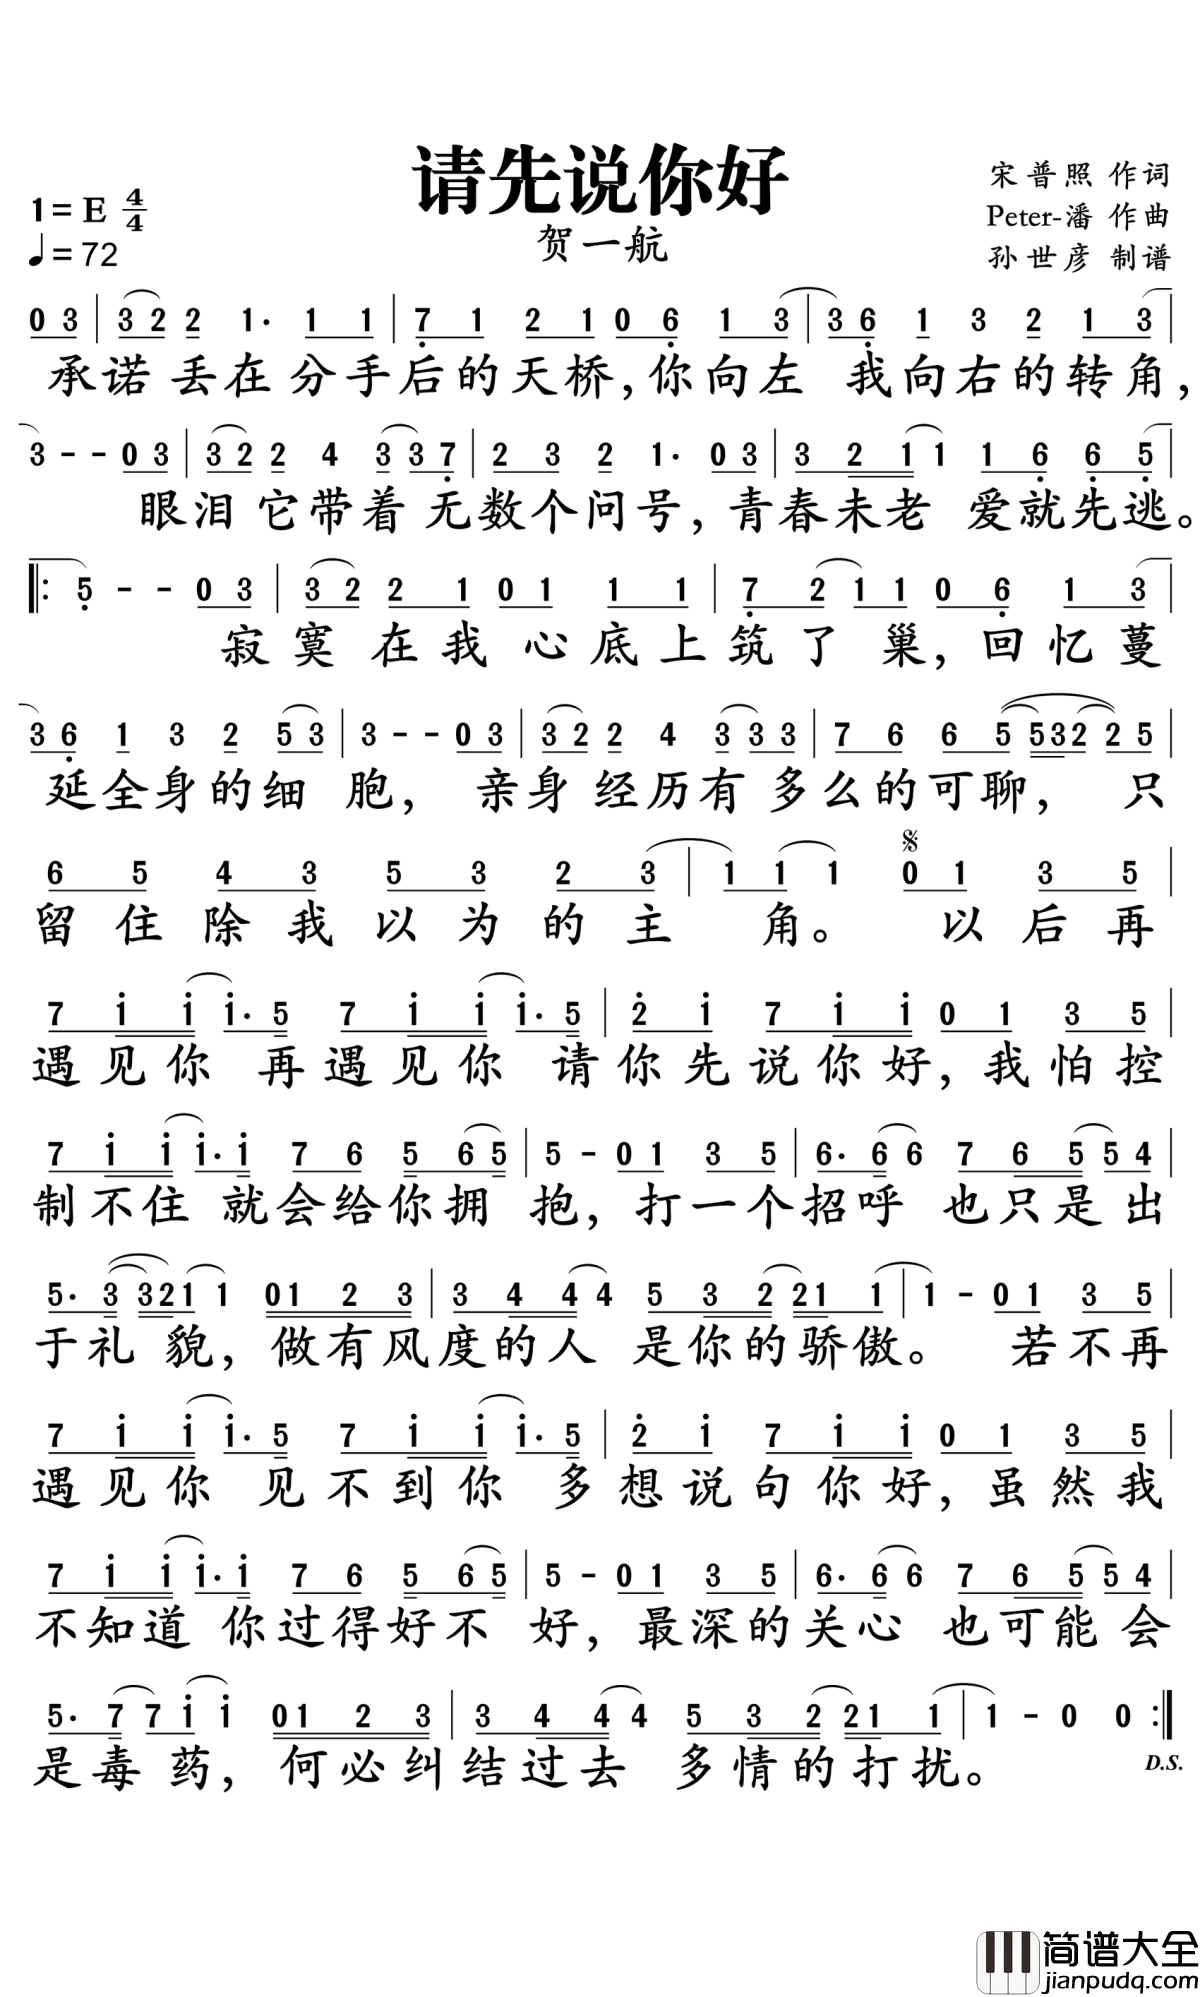 请先说你好
贺一航
1=E 4/4
♩=72
宋普照 作词
Peter-潘 作曲
孙世彦 制谱
0 3 | 3 2 2 1· 1 1 | 7 1 2 1 0 6 1 3 | 3 6 1 3 2 1 3 |
承诺丢在分手后的天桥，你向左 我向右的转角，
3 - - 0 3 | 3 2 2 4 3 3 7 | 2 3 2 1· 0 3 | 3 2 1 1 1 6 6 5 |
眼泪它带着无数个问号，青春未老 爱就先逃。
‖: 5 - - 0 3 | 3 2 2 1 0 1 1 1 | 7 2 1 1 0 6 1 3 |
寂寞在我心底上筑了巢，回忆蔓
3 6 1 3 2 5 3 | 3 - - 0 3 | 3 2 2 4 3 3 3 | 7 6 6 5 5 3 2 2 5 |
延全身的细胞，亲身经历有多么的可聊，只
6 5 4 3 5 3 2 3 | 1 1 1 0 1 3 5 |
留住除我以为的主角。以后再
7 1 1 1· 5 7 1 1 1· 5 | 2 1 7 1 1 0 1 3 5 |
遇见你 再遇见你 请你先说你好，我怕控
7 1 1 1· 1 7 6 5 6 5 | 5 - 0 1 3 5 | 6· 6 6 7 6 5 5 4 |
制不住 就会给你拥抱，打一个招呼 也只是出
5· 3 3 2 1 1 0 1 2 3 | 3 4 4 4 5 3 2 2 1 1 | 1 - 0 1 3 5 |
于礼貌，做有风度的人 是你的骄傲。若不再
7 1 1 1· 5 7 1 1 1· 5 | 2 1 7 1 1 0 1 3 5 |
遇见你 见不到你 多想说句你好，虽然我
7 1 1 1· 1 7 6 5 6 5 | 5 - 0 1 3 5 | 6· 6 6 7 6 5 5 4 |
不知道 你过得好不好，最深的关心 也可能会
5· 7 7 1 1 0 1 2 3 | 3 4 4 4 5 3 2 2 1 1 | 1 - 0 0 :‖
是毒药，何必纠结过去 多情的打扰。
D.S.
简谱大全
jianpudq.com